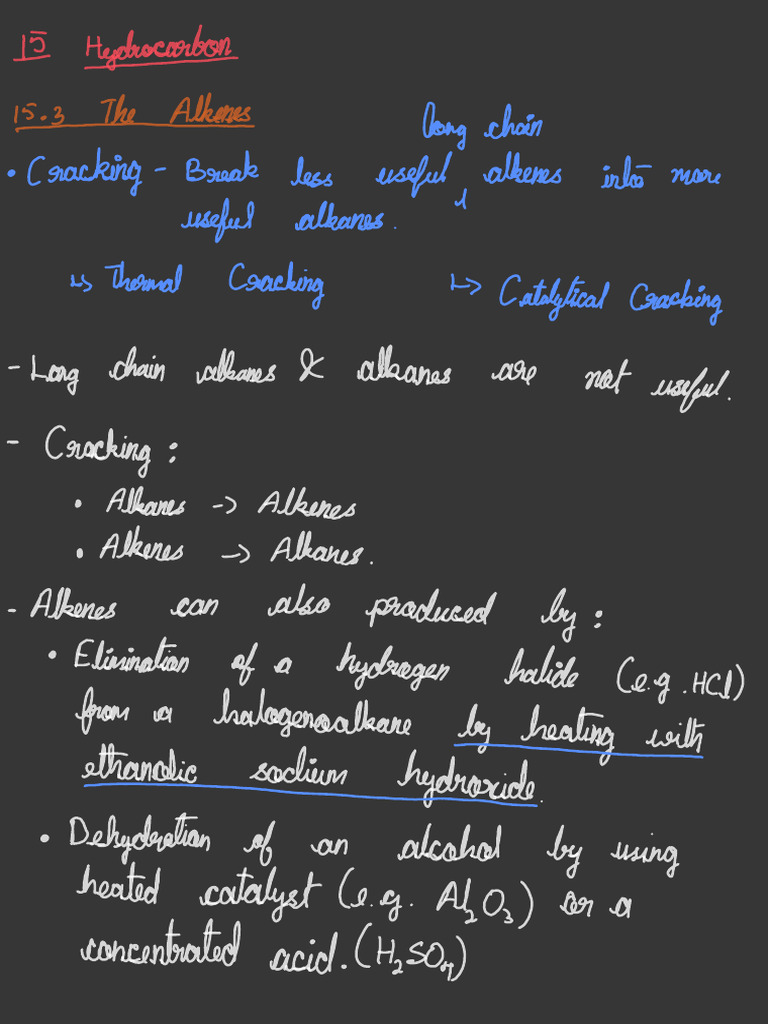 15 Hydrocarbon
15.3 The Alkenes
long chain
• Cracking - Break less useful alkenes into more
useful alkanes.
↳ Thermal Cracking ↳ Catalytical Cracking
- Long chain alkanes & alkanes are not useful.
- Cracking :
• Alkanes -> Alkenes
• Alkenes -> Alkanes.
- Alkenes can also produced by :
• Elimination of a hydrogen halide (e.g. HCl)
from a halogenoalkane by heating with
ethanolic sodium hydroxide.
• Dehydration of an alcohol by using
heated catalyst (e.g. Al₂O₃) or a
concentrated acid. (H₂SO₄)